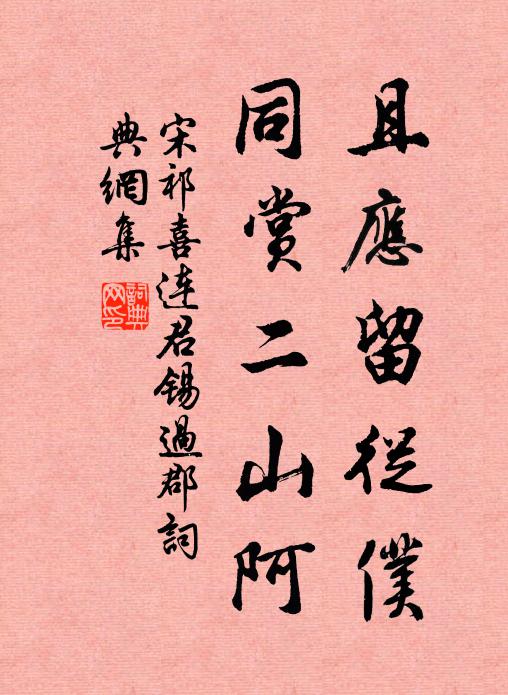 且應留從僕
同賞二山阿
宋祁喜連君錫過郡詞
典網集
詞典
网印